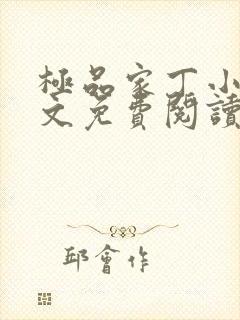 極品家丁小
文免費閱讀
邱會作